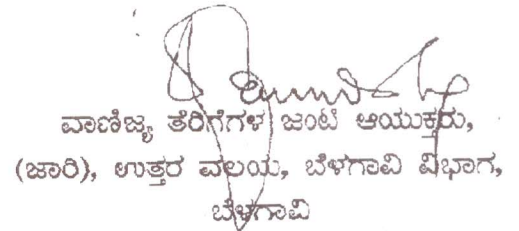 ವಾಣಿಜ್ಯ ತೆರಿಗೆಗಳ ಜಂಟಿ ಆಯುಕ್ತರು,
(ಜಾರಿ), ಉತ್ತರ ವಲಯ, ಬೆಳಗಾವಿ ವಿಭಾಗ,
ಬೆಳಗಾವಿ